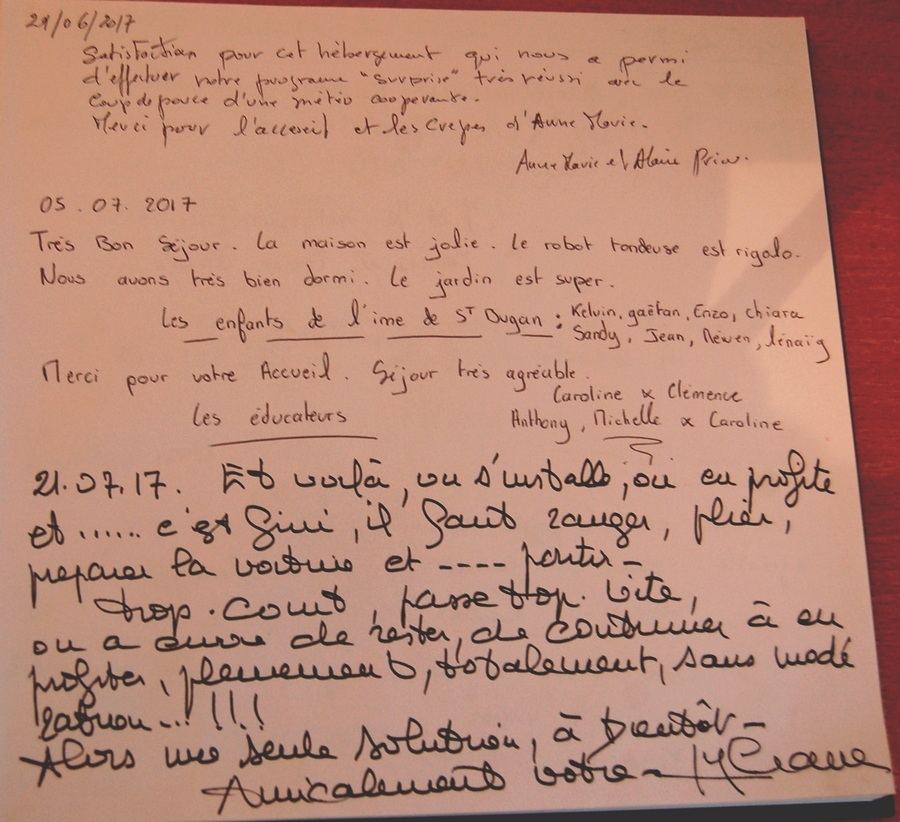 29/06/2017
Satisfaction pour cet hébergement qui nous a permi
d'effectuer notre programe "surprise" très réussi avec le
coup de pouce d'une météo cooperante.
Merci pour l'acceuil et les crepes d'Anne Marie.
Anne Marie et Alain
05.07.2017
Très Bon Séjour. La maison est jolie. Le robot tondeuse est rigolo.
Nous avons très bien dormi. Le jardin est super.
Les enfants de l'ime de ST Dugan : Kelvin, gaëtan, Enzo, chiara
Sandy, Jean, Néwen, lénaïg
Merci pour votre Accueil. Séjour très agréable.
Caroline x Clémence
Les éducateurs Anthony, Michelle x Caroline
21.07.17. Et voilà, on s'installe, on en profite
et ...... c'est fini, il faut ranger, plier,
préparer la voiture et ---- partir -
trop. court, passe trop. vite,
on a envie de rester, de continuer à en
profiter, pleinement, totalement, sans modé
ration... !!!
Alors une seule solution, à bientôt -
Amicalement votre -